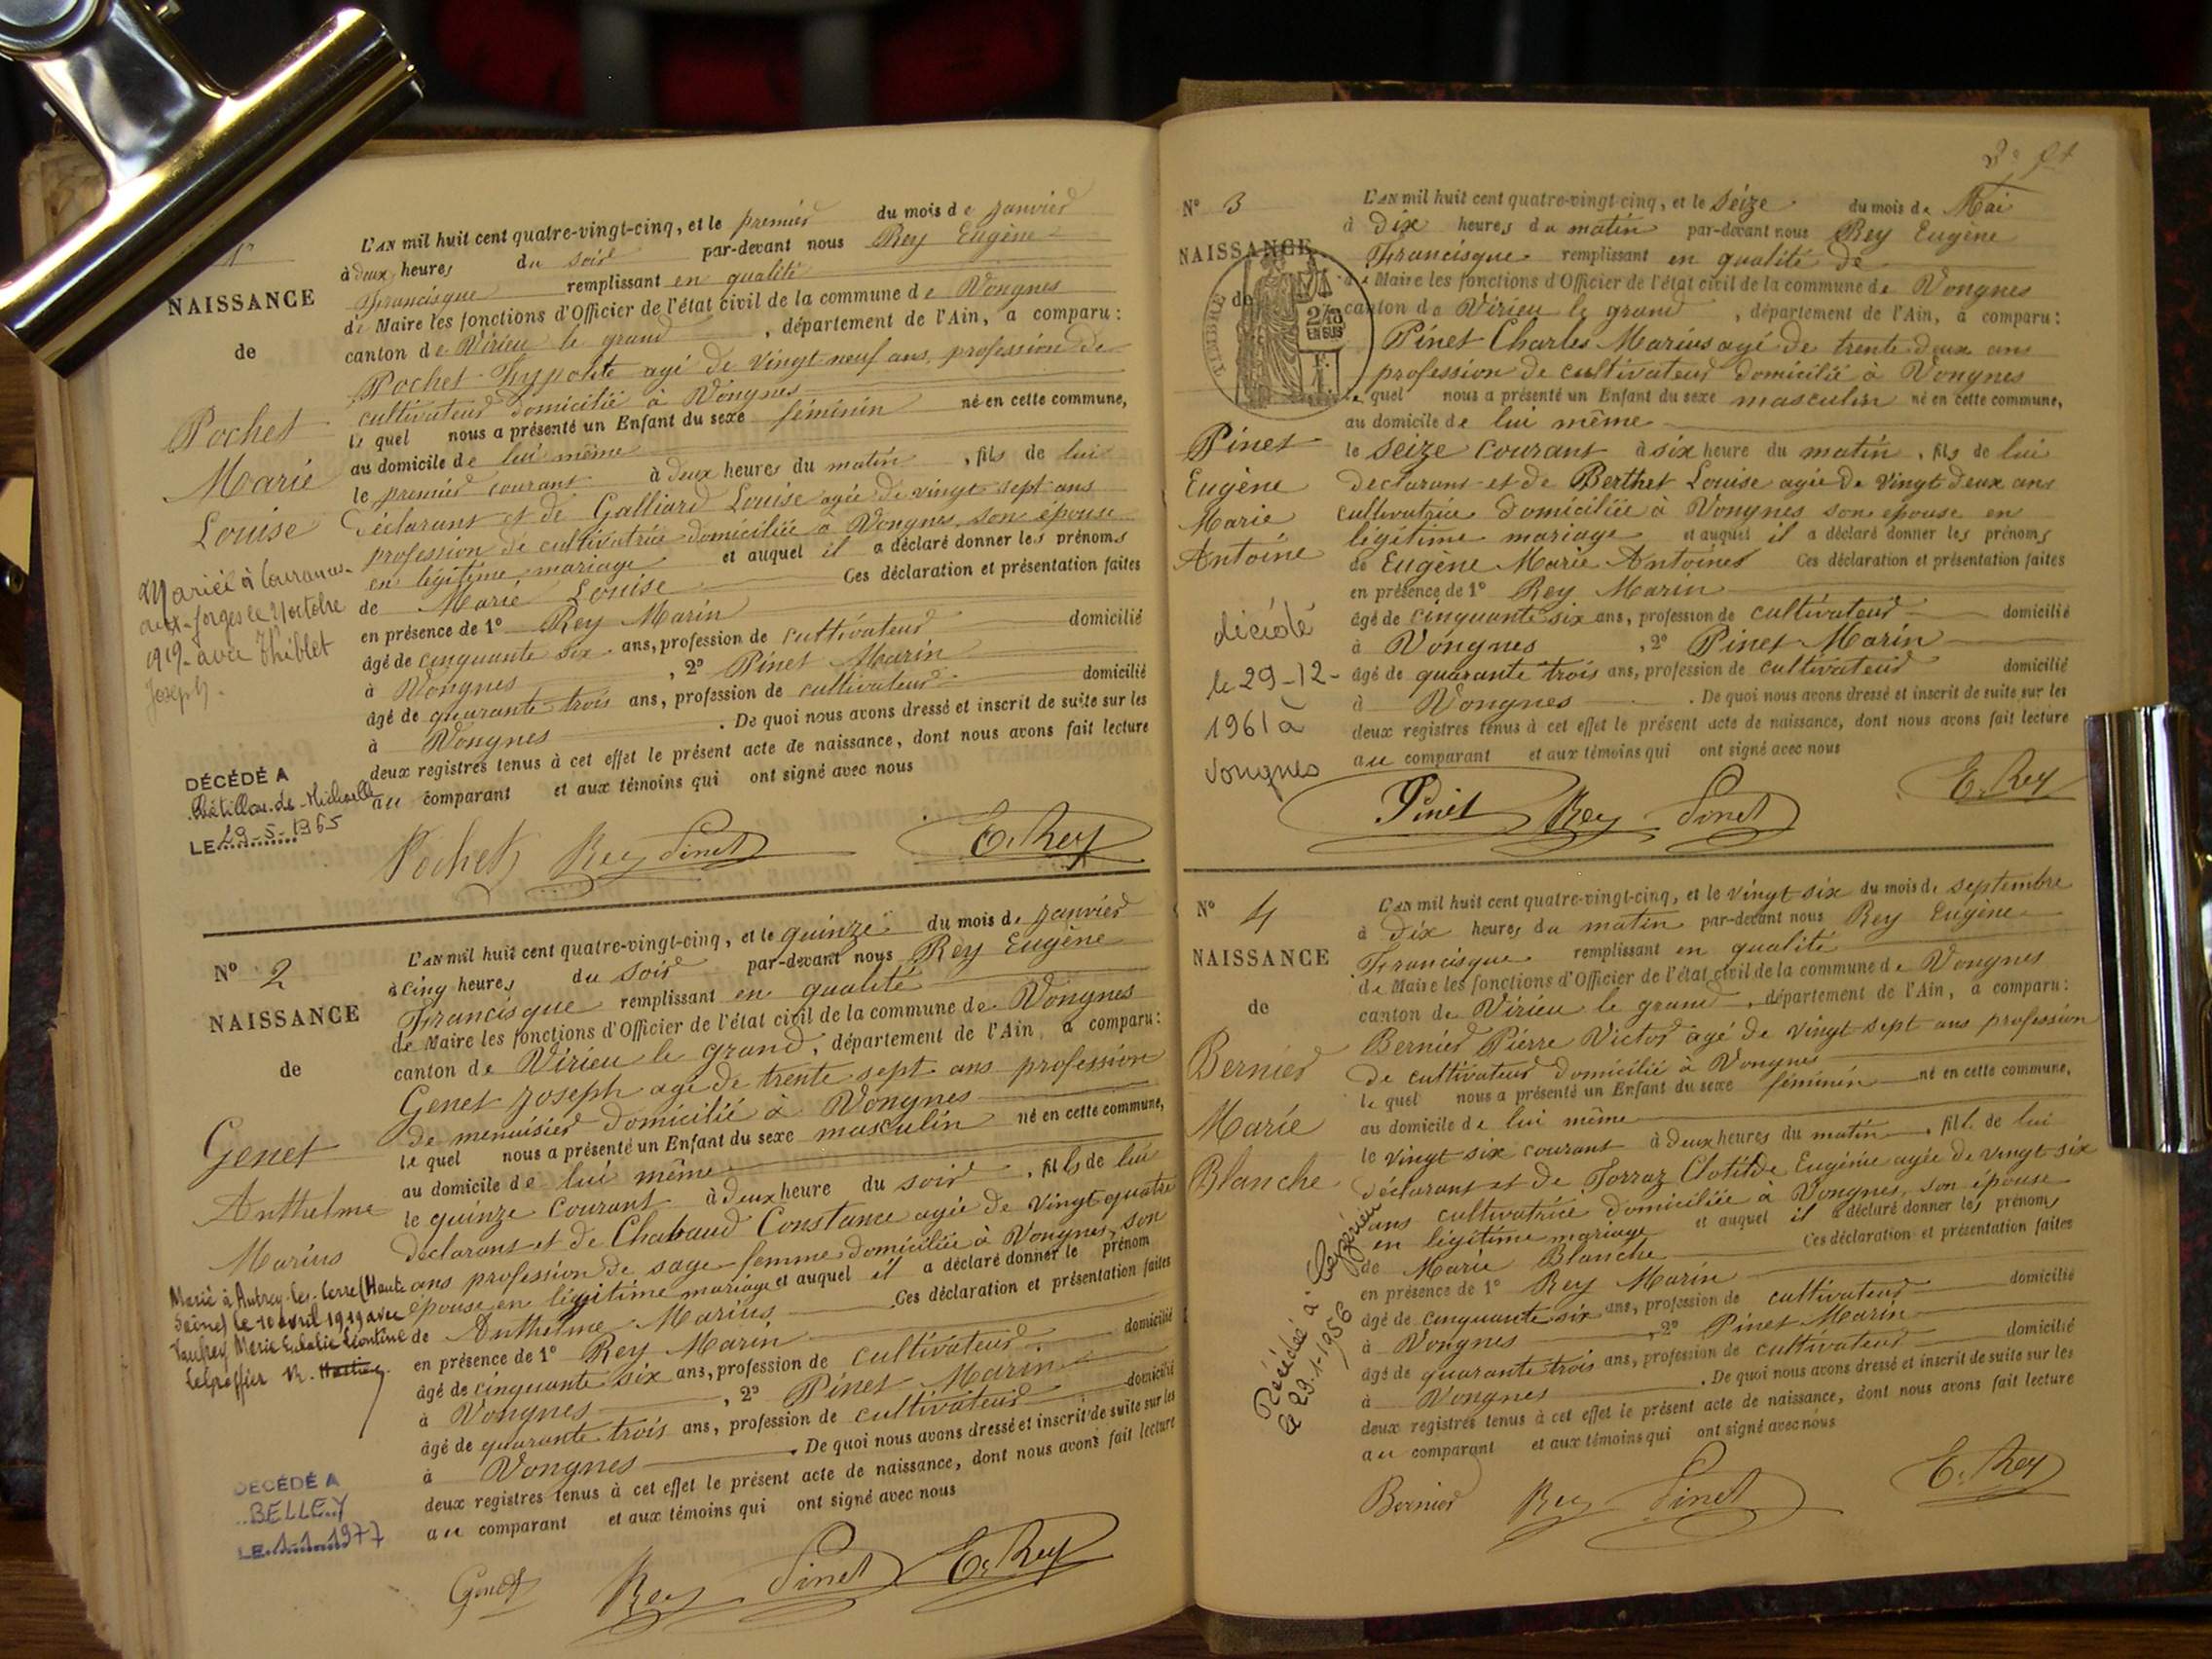 1º
NAISSANCE
de
Pochet
Marie
Louise
Mariée à
aux-forges le octobre
1919 avec Thiblet
Joseph.
DÉCÉDÉ A
Châtillon-de-Michaille
LE 29-5-1965
L'AN mil huit cent quatre-vingt-cinq, et le premier du mois de janvier
à deux heures du soir par-devant nous Rey Eugène
Francisque remplissant en qualité
de Maire les fonctions d'Officier de l'état civil de la commune de Vongnes
canton de Virieu le grand, département de l'Ain, a comparu:
Pochet Hypolite agé de vingt neuf ans, profession de
cultivateur domicilié à Vongnes
le quel nous a présenté un Enfant du sexe féminin né en cette commune,
au domicile de lui même
le premier courant à deux heures du matin, fils de lui
déclarant et de Galliard Louise agée de vingt sept ans
profession de cultivatrice domiciliée à Vongnes son épouse
en légitime mariage et auquel il a déclaré donner les prénoms
de Marie Louise Ces déclaration et présentation faites
en présence de 1º Rey Marin
âgé de cinquante six ans, profession de cultivateur domicilié
à Vongnes, 2º Pinet Marin
âgé de quarante trois ans, profession de cultivateur domicilié
à Vongnes. De quoi nous avons dressé et inscrit de suite sur les
deux registres tenus à cet effet le présent acte de naissance, dont nous avons fait lecture
au comparant et aux témoins qui ont signé avec nous
Pochet Rey Pinet E. Rey
Nº 2
NAISSANCE
de
Genet
Anthelme
Marius
Marié à Autrey-les-Cerre (Haute
Saône) le 10 avril 1919 avec
Vaufrey Marie Eulalie Léontine
Le greffier
DÉCÉDÉ A
BELLEY
LE 1-1-1977
L'AN mil huit cent quatre-vingt-cinq, et le quinze du mois de janvier
à cinq heures du soir par-devant nous Rey Eugène
Francisque remplissant en qualité
de Maire les fonctions d'Officier de l'état civil de la commune de Vongnes
canton de Virieu le grand, département de l'Ain, a comparu:
Genet Joseph agé de trente sept ans profession
de menuisier domicilié à Vongnes
le quel nous a présenté un Enfant du sexe masculin né en cette commune,
au domicile de lui même
le quinze courant à deux heure du soir, fils de lui
déclarant et de Chabaud Constance agée de vingt quatre
ans profession de sage femme domiciliée à Vongnes, son
épouse en légitime mariage et auquel il a déclaré donner le prénom
de Anthelme Marius Ces déclaration et présentation faites
en présence de 1º Rey Marin
âgé de cinquante six ans, profession de cultivateur domicilié
à Vongnes, 2º Pinet Marin
âgé de quarante trois ans, profession de cultivateur domicilié
à Vongnes. De quoi nous avons dressé et inscrit de suite sur les
deux registres tenus à cet effet le présent acte de naissance, dont nous avons fait lecture
au comparant et aux témoins qui ont signé avec nous
Genet Rey Pinet E. Rey
Nº 3
NAISSANCE
de
TIMBRE
2/10
EN SUS
Pinet
Eugène
Marie
Antoine
décédé
le 29-12-
1961 à
Vongnes
L'AN mil huit cent quatre-vingt-cinq, et le seize du mois de Mai
à dix heures du matin par-devant nous Rey Eugène
Francisque remplissant en qualité de
de Maire les fonctions d'Officier de l'état civil de la commune de Vongnes
canton de Virieu le grand, département de l'Ain, a comparu:
Pinet Charles Marius agé de trente deux ans
profession de cultivateur domicilié à Vongnes
le quel nous a présenté un Enfant du sexe masculin né en cette commune,
au domicile de lui même
le seize courant à six heure du matin, fils de lui
declarant et de Berthet Louise agée de vingt deux ans
cultivatrice domiciliée à Vongnes son épouse en
légitime mariage et auquel il a déclaré donner les prénoms
de Eugène Marie Antoine Ces déclaration et présentation faites
en présence de 1º Rey Marin
âgé de cinquante six ans, profession de cultivateur domicilié
à Vongnes, 2º Pinet Marin
âgé de quarante trois ans, profession de cultivateur domicilié
à Vongnes. De quoi nous avons dressé et inscrit de suite sur les
deux registres tenus à cet effet le présent acte de naissance, dont nous avons fait lecture
au comparant et aux témoins qui ont signé avec nous
Pinet Rey Pinet E. Rey
Nº 4
NAISSANCE
de
Bernier
Marie
Blanche
Décédée à Ceyzérieu
le 29-1-1956
L'AN mil huit cent quatre-vingt-cinq, et le vingt six du mois de septembre
à dix heures du matin par-devant nous Rey Eugène
Francisque remplissant en qualité
de Maire les fonctions d'Officier de l'état civil de la commune de Vongnes
canton de Virieu le grand, département de l'Ain, a comparu:
Bernier Pierre Victor agé de vingt sept ans profession
de cultivateur domicilié à Vongnes
le quel nous a présenté un Enfant du sexe féminin né en cette commune,
au domicile de lui même
le vingt six courant à deux heures du matin, fils de lui
déclarant et de Forraz Clotilde Eugénie agée de vingt six
ans cultivatrice domiciliée à Vongnes, son épouse
en légitime mariage et auquel il a déclaré donner les prénoms
de Marie Blanche Ces déclaration et présentation faites
en présence de 1º Rey Marin
âgé de cinquante six ans, profession de cultivateur domicilié
à Vongnes, 2º Pinet Marin
âgé de quarante trois ans, profession de cultivateur domicilié
à Vongnes. De quoi nous avons dressé et inscrit de suite sur les
deux registres tenus à cet effet le présent acte de naissance, dont nous avons fait lecture
au comparant et aux témoins qui ont signé avec nous
Bernier Rey Pinet E. Rey